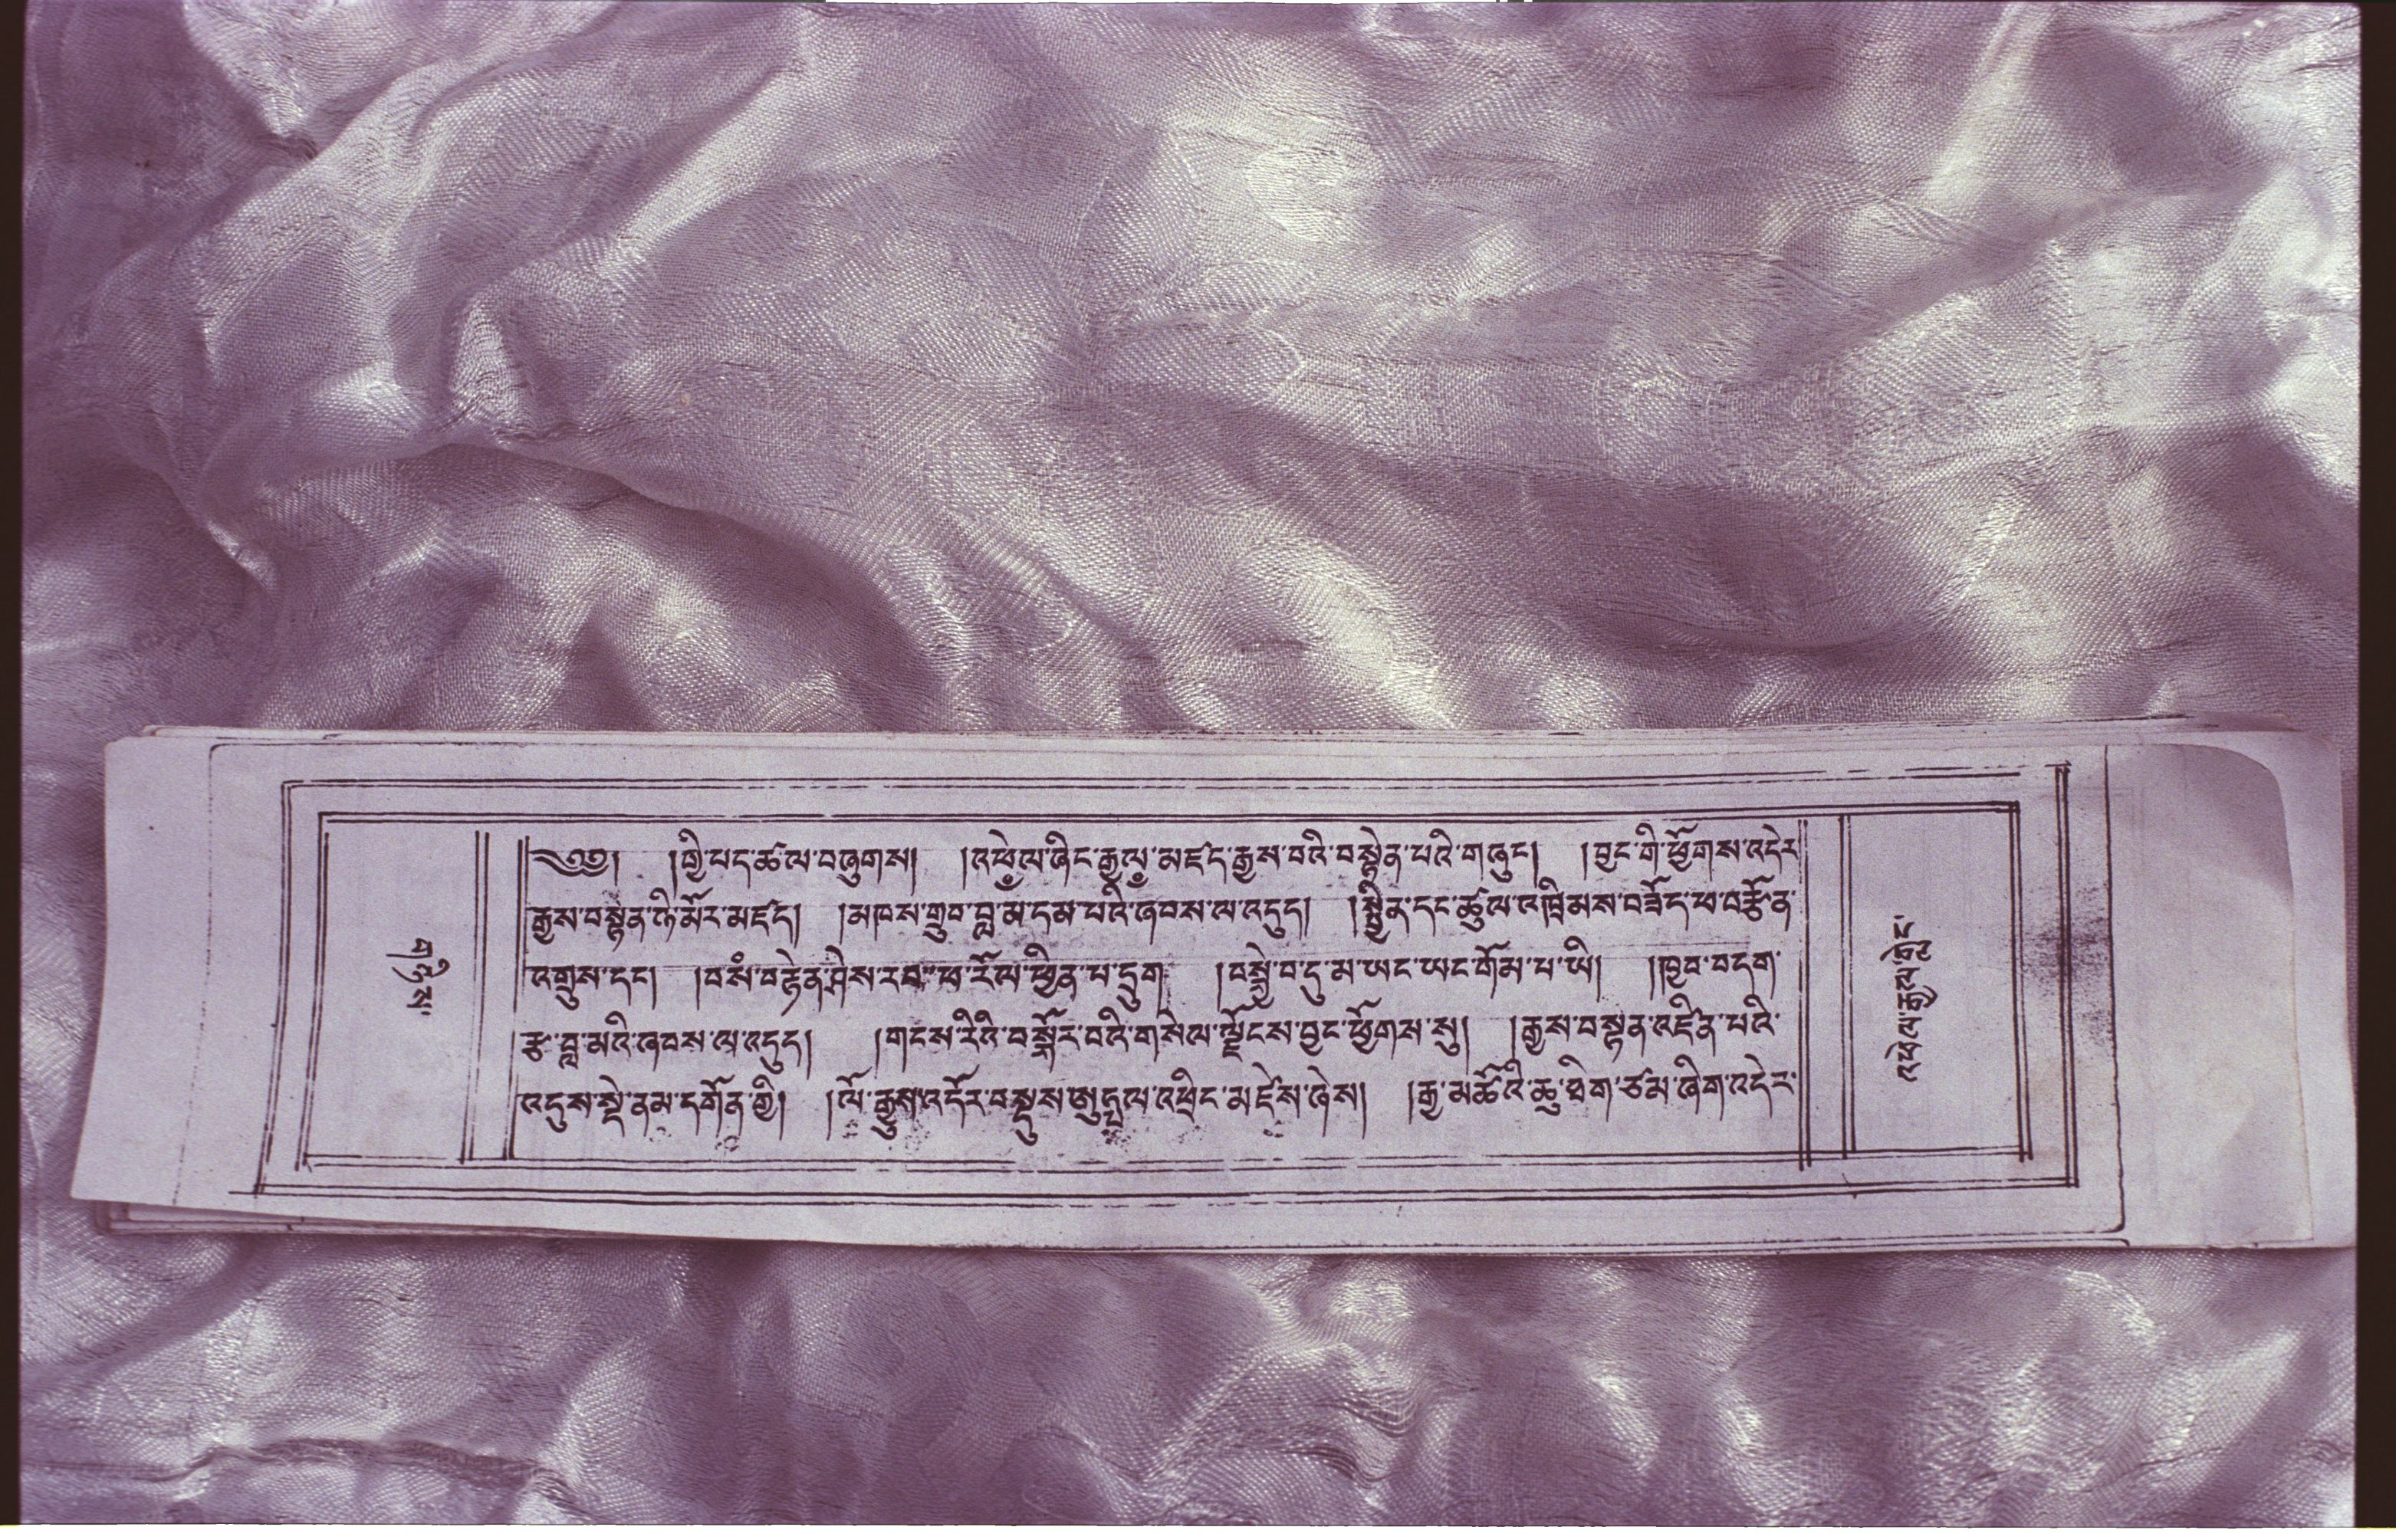 ༄༅། །ཀྱི་པད་ཚལ་བཞུགས། །འཕེལ་ཞིང་རྒྱལ་མཛད་རྒྱས་བའི་བསྟེན་པའི་གཞུང། །བྱང་གི་ཕྱོགས་འདེར
རྒྱས་བསྟན་ཉི་མོར་མཛད། །མཁས་གྲུབ་བླ་མ་དམ་པའི་ཞབས་ལ་འདུད། །སྦྱིན་དང་ཚུལ་འཁྲིམས་བཟོད་པ་བརྩོན་
འགྲུས་དང། །བསཾ་བརྟེན་ཤེས་རབ་ཕ་རོལ་ཕྱིན་པ་དྲུག །བསྲེ་བ་དུ་མ་ཡང་ཡང་གོམ་པ་ཡི། །ཁྱབ་བདག་
རྩ་བླ་མའི་ཞབས་ལ་འདུད། །གངས་རིའི་བསྐོར་བའི་གསེལ་ལྗོངས་བྱང་ཕྱོགས་སུ། །རྒྱས་བསྟན་འཛིན་པའི་
འདུས་སྡེ་ནམ་དགོན་གྱི། །ལོ་རྒྱུས་འདོར་བསྡུས་ཨུཏྤལ་འཕྲིང་མཛེས་ཞེས། །རྒྱ་མཚོའི་ཆུ་ཐིག་ཙམ་ཞིག་འདེར་